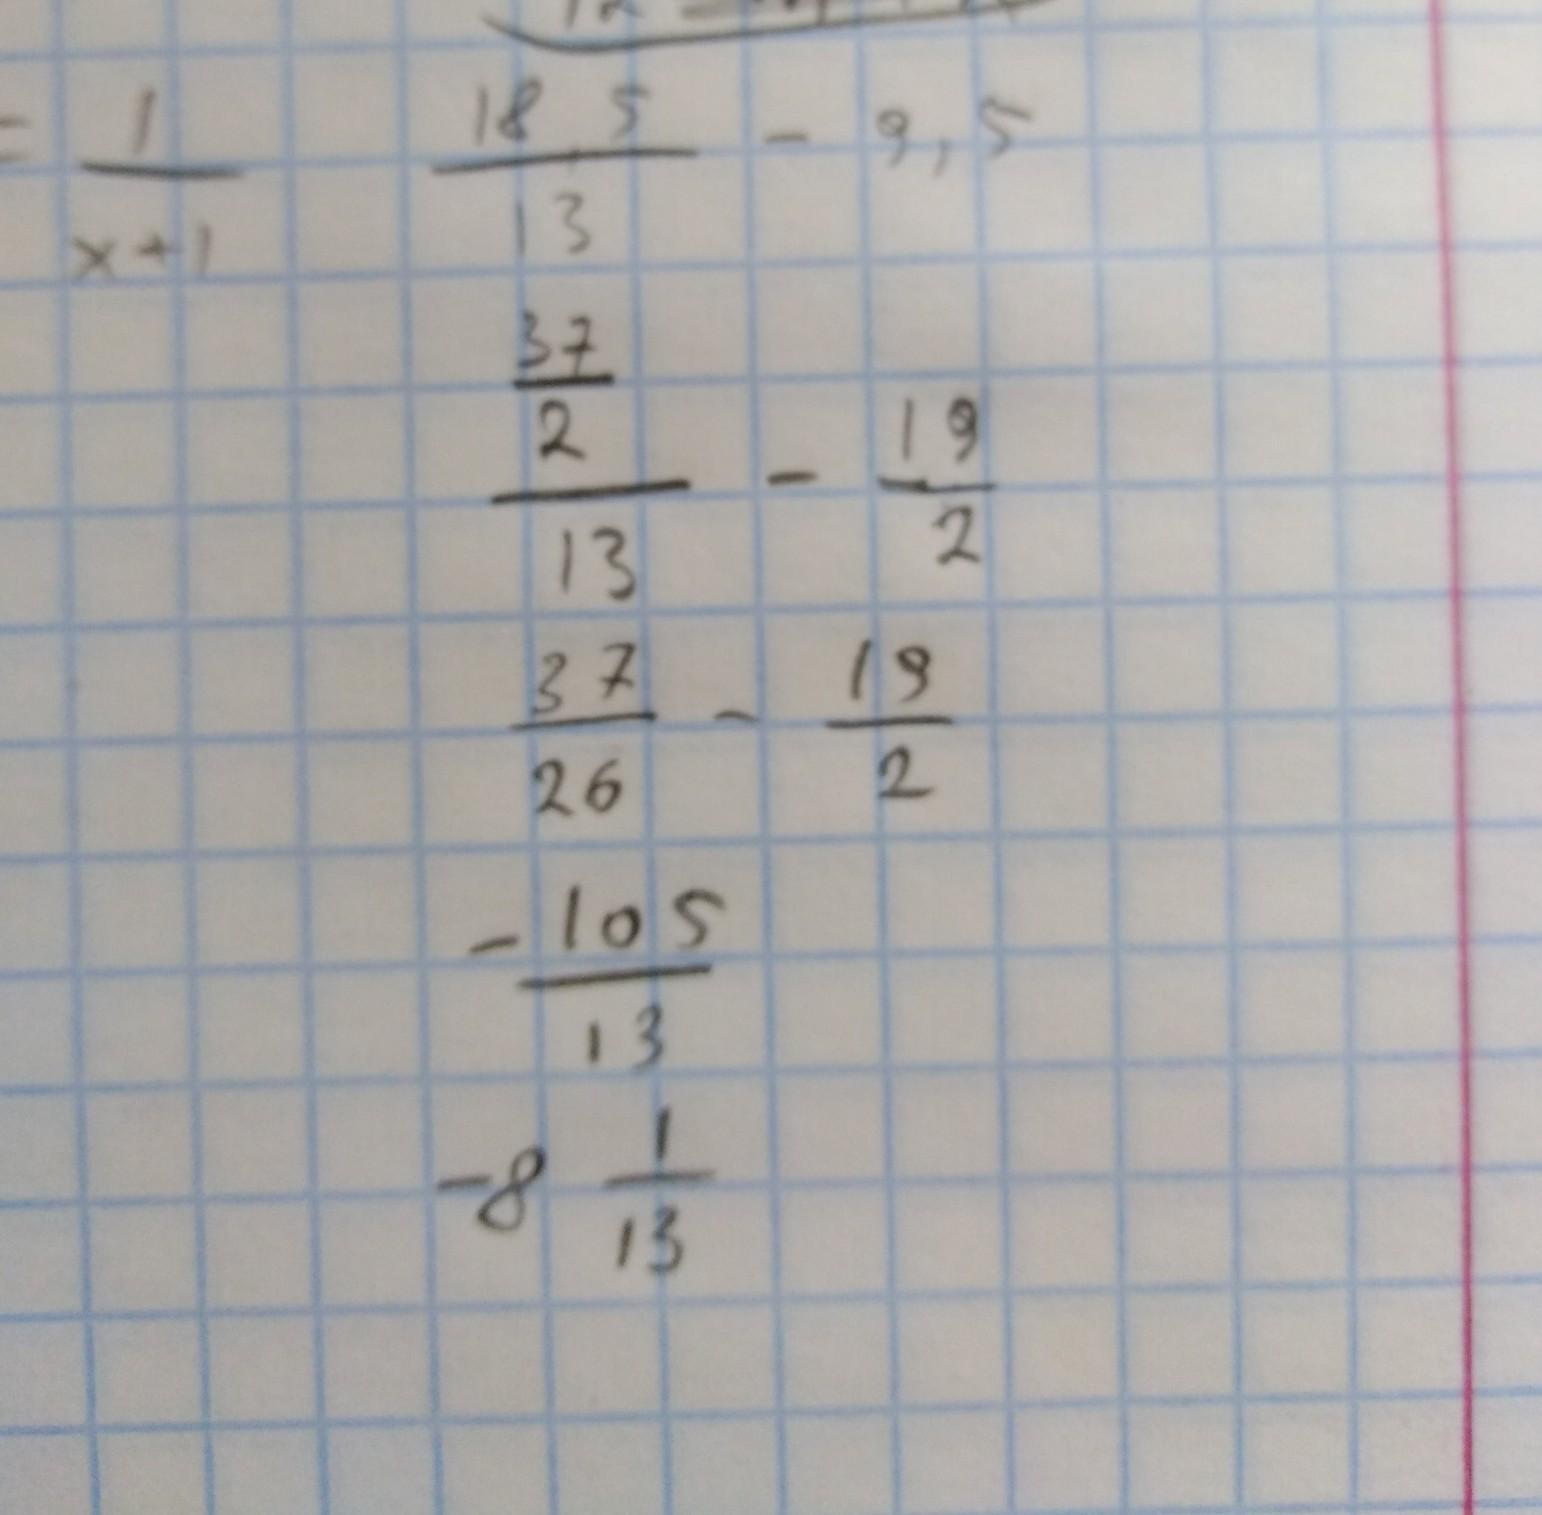 = 1/(x+1) 18 5/13 - 9,5
(37/2)/13 - 19/2
37/26 - 19/2
- 105/13
-8 1/13